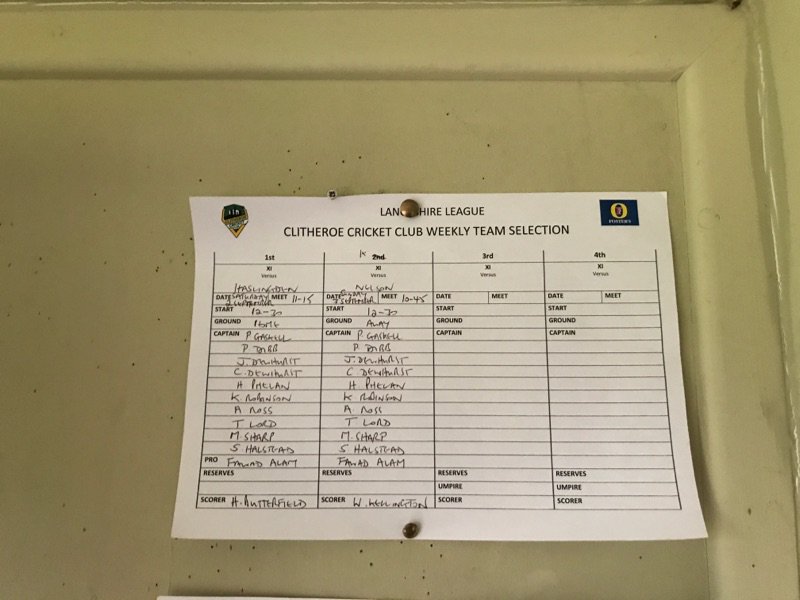 LANCASHIRE LEAGUE
FOSTER'S
CLITHEROE CRICKET CLUB WEEKLY TEAM SELECTION
1st 1st 2nd 3rd 4th
XI XI XI XI
Versus Versus Versus Versus
HASLINGDEN NELSON
DATE SATURDAY 2 SEPTEMBER MEET 11-15 DATE SUNDAY 3 SEPTEMBER MEET 10-45 DATE MEET DATE MEET
START 12-30 START 12-30 START START
GROUND HOME GROUND AWAY GROUND GROUND
CAPTAIN P GASKELL CAPTAIN P. GASKELL CAPTAIN CAPTAIN
P DIBB P DIBB
J. DEWHURST J. DEWHURST
C. DEWHURST C DEWHURST
H PHELAN H PHELAN
K. ROBINSON K ROBINSON
A ROSS A. ROSS
T LORD T LORD
M. SHARP M. SHARP
S HALSTEAD S HALSTEAD
PRO FAWAD ALAM FAWAD ALAM
RESERVES RESERVES RESERVES RESERVES
UMPIRE UMPIRE
SCORER H. BUTTERFIELD SCORER W. WELLINGTON SCORER SCORER